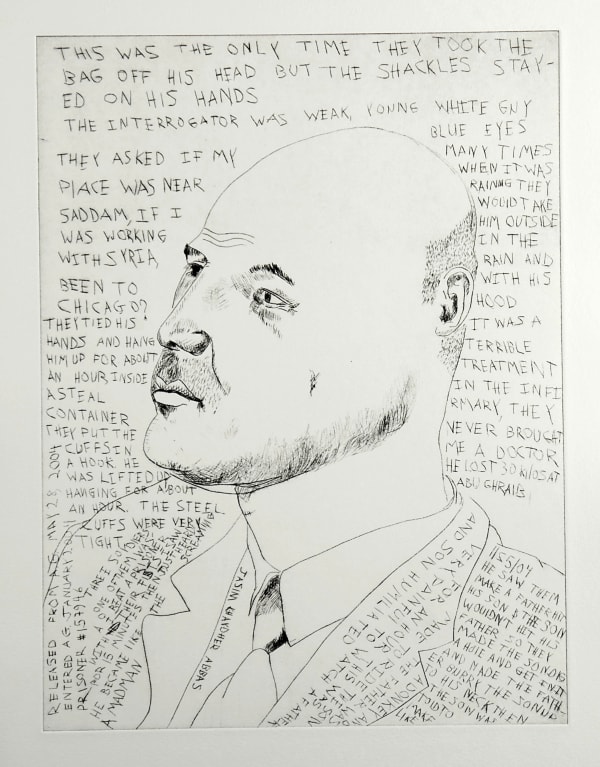 THIS WAS THE ONLY TIME THEY TOOK THE
BAG OFF HIS HEAD BUT THE SHACKLES STAY-
ED ON HIS HANDS
THE INTERROGATOR WAS WEAK, YOUNG WHITE GUY
BLUE EYES
THEY ASKED IF MY
PLACE WAS NEAR
SADDAM, IF I
WAS WORKING
WITH SYRIA,
BEEN TO
CHICAGO?
THEY TIED HIS
HANDS AND HANG
HIM UP FOR ABOUT
AN HOUR, INSIDE
A STEAL
CONTAINER
THEY PUT THE
CUFFS IN
A HOOK. HE
WAS LIFTED UP
HANGING FOR ABOUT
AN HOUR. THE STEEL
CUFFS WERE VERY
TIGHT
MANY TIMES
WHEN IT WAS
RAINING THEY
WOULD TAKE
HIM OUTSIDE
IN THE
RAIN AND
WITH HIS
HOOD
IT WAS A
TERRIBLE
TREATMENT
IN THE INFI
RMARY, THEY
NEVER BROUGHT
ME A DOCTOR
HE LOST 30 KILOS AT
ABU GHRAIB.
RELEASED FROM A.G. MAY 28, 2004
ENTERED A.G. JANUARY 2004
PRISONER #157946
HE BECAME LIKE
A MADMAN
JASIM KHADHER ABBAS
1/55/04
HE SAW THEM
MAKE A FATHER HIT
HIS SON & THE SON
WOULDN'T HIT HIS
FATHER SO THEY
MADE THE SON DIG
A HOLE AND GET IN IT
AND MADE THE FATH-
ER BURRY THE SON UP
TO HIS NECK THEN
TOLD TO
THE SON WAS
MAKE
LIKE
A DONKEY
AND SON HUMILIATED